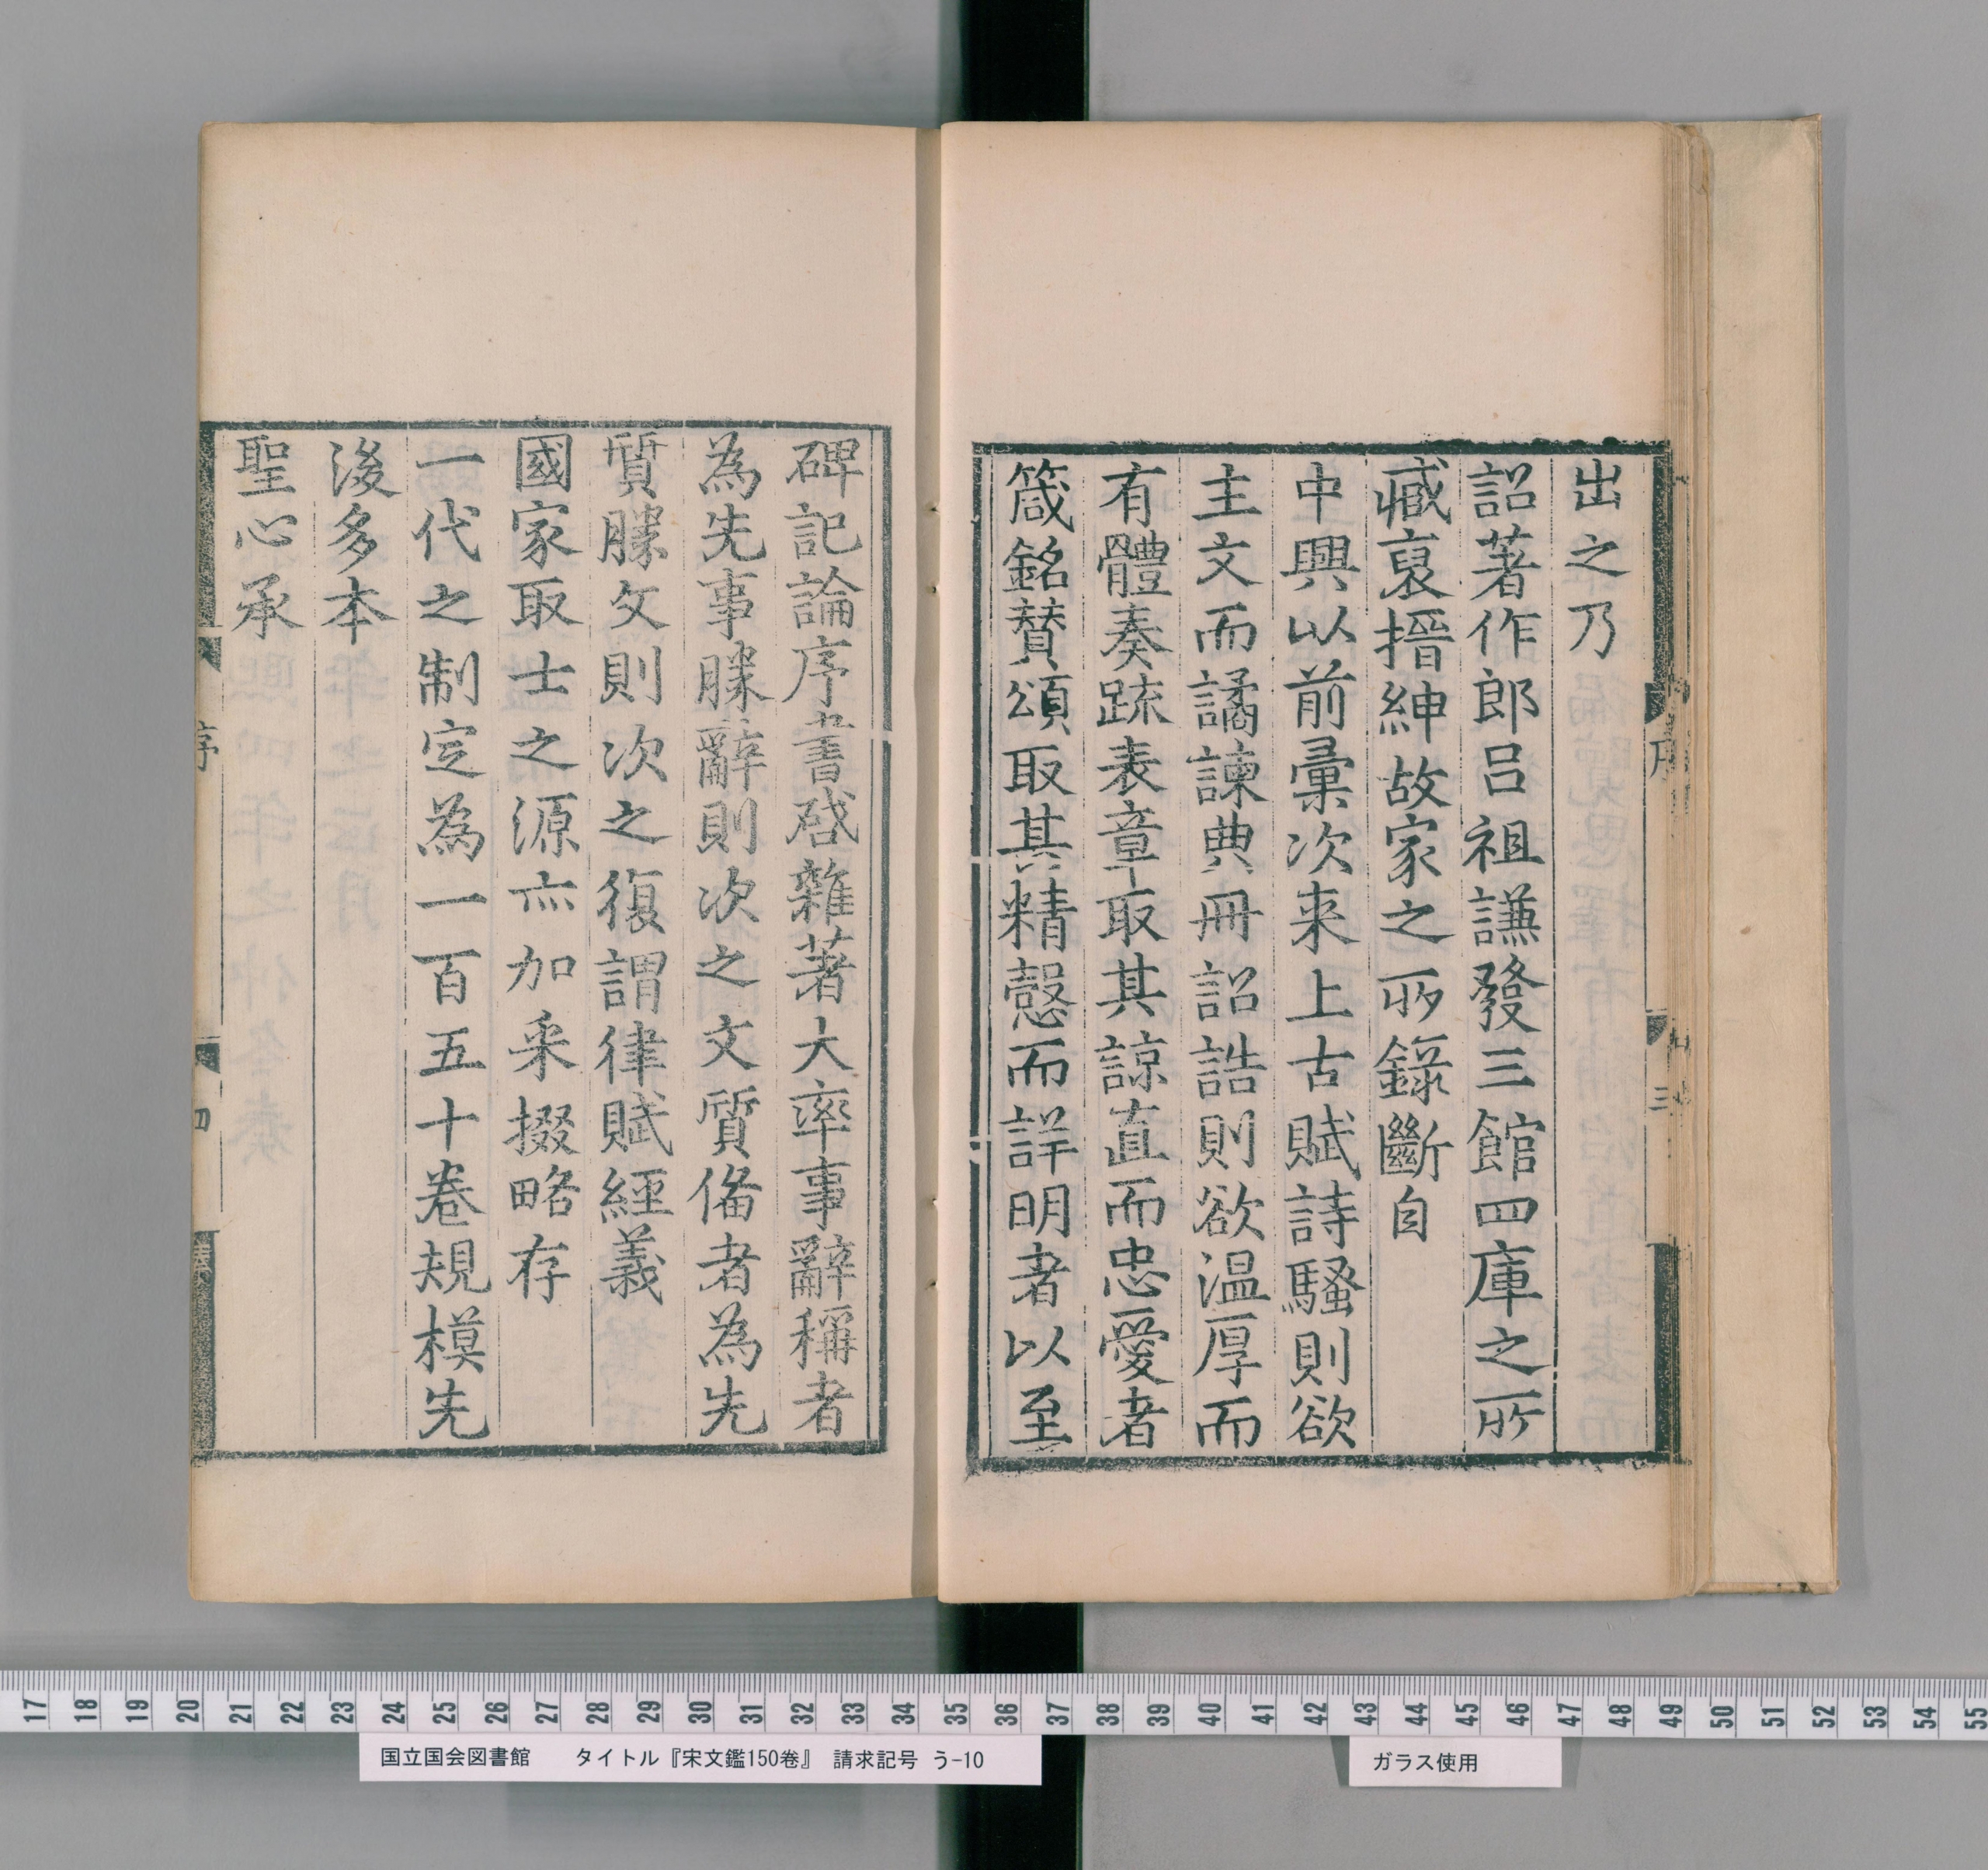 出之乃
詔著作郎呂祖謙發三館四庫之所
臧裒搢紳故家之所錄斷自
中興以前彙次来上古賦詩騷則欲
主文而譎諫典冊詔誥則欲温厚而
有體奏疏表章取其諒直而忠愛者
箴銘賛頌取其精慤而詳明者以至
序
三
碑記論序書啓雜著大率事辭稱者
為先事勝辭則次之文質俻者為先
質勝文則次之復謂律賦經義
國家取士之源亦加采掇略存
一代之制定為一百五十卷規模先
後多本
聖心承
序
四
17 18 19 20 21 22 23 24 25 26 27 28 29 30 31 32 33 34 35 36 37 38 39 40 41 42 43 44 45 46 47 48 49 50 51 52 53 54 55
国立国会図書館 タイトル『宋文鑑150巻』 請求記号 う-10
ガラス使用